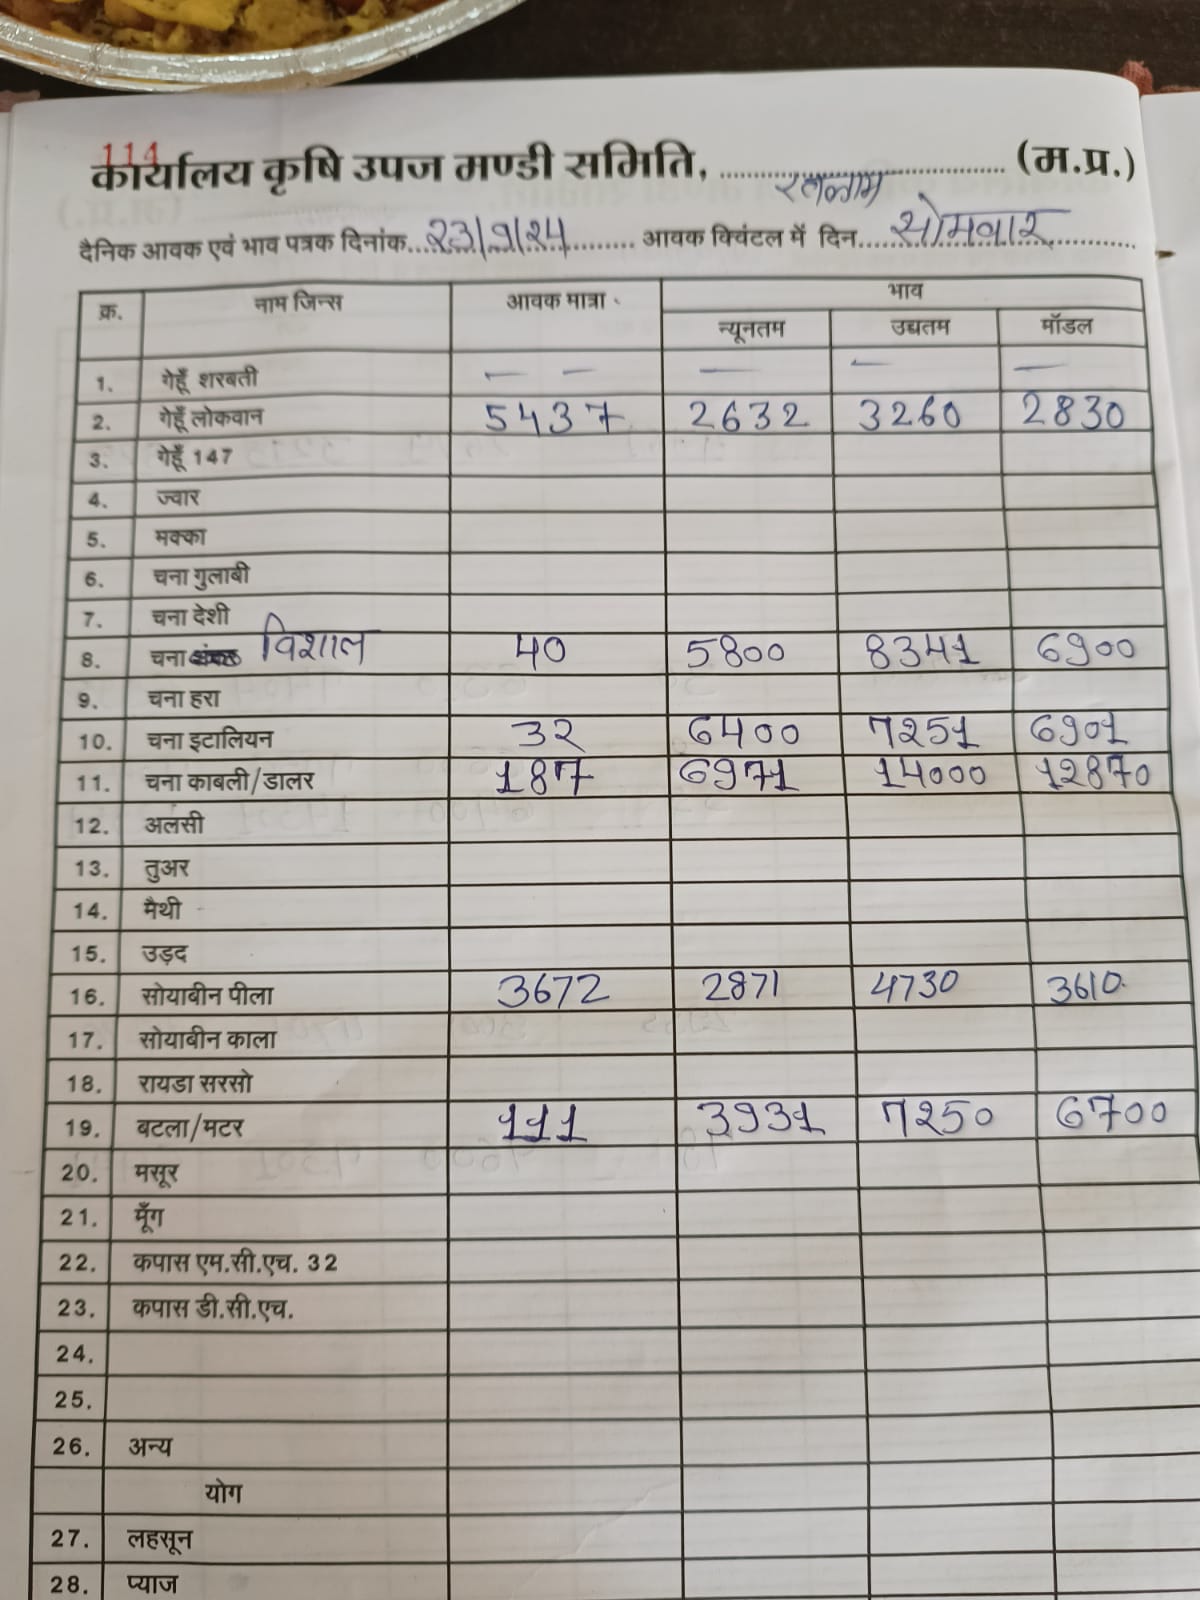 114
कार्यालय कृषि उपज मण्डी समिति, रतलाम (म.प्र.)
दैनिक आवक एवं भाव पत्रक दिनांक 23/9/24 आवक क्विंटल में दिन सोमवार
क्र. नाम जिन्स आवक मात्रा भाव
न्यूनतम उच्चतम मॉडल
1. गेहूँ शरबती — — — — —
2. गेहूँ लोकवान 5437 2632 3260 2830
3. गेहूँ 147
4. ज्वार
5. मक्का
6. चना गुलाबी
7. चना देशी
8. चना विशाल 40 5800 8341 6900
9. चना हरा
10. चना इटालियन 32 6400 7251 6901
11. चना काबली/डालर 187 6971 14000 12870
12. अलसी
13. तुअर
14. मैथी
15. उड़द
16. सोयाबीन पीला 3672 2871 4730 3610
17. सोयाबीन काला
18. रायडा सरसो
19. बटला/मटर 111 3931 7250 6700
20. मसूर
21. मूँग
22. कपास एम.सी.एच. 32
23. कपास डी.सी.एच.
24.
25.
26. अन्य
योग
27. लहसून
28. प्याज